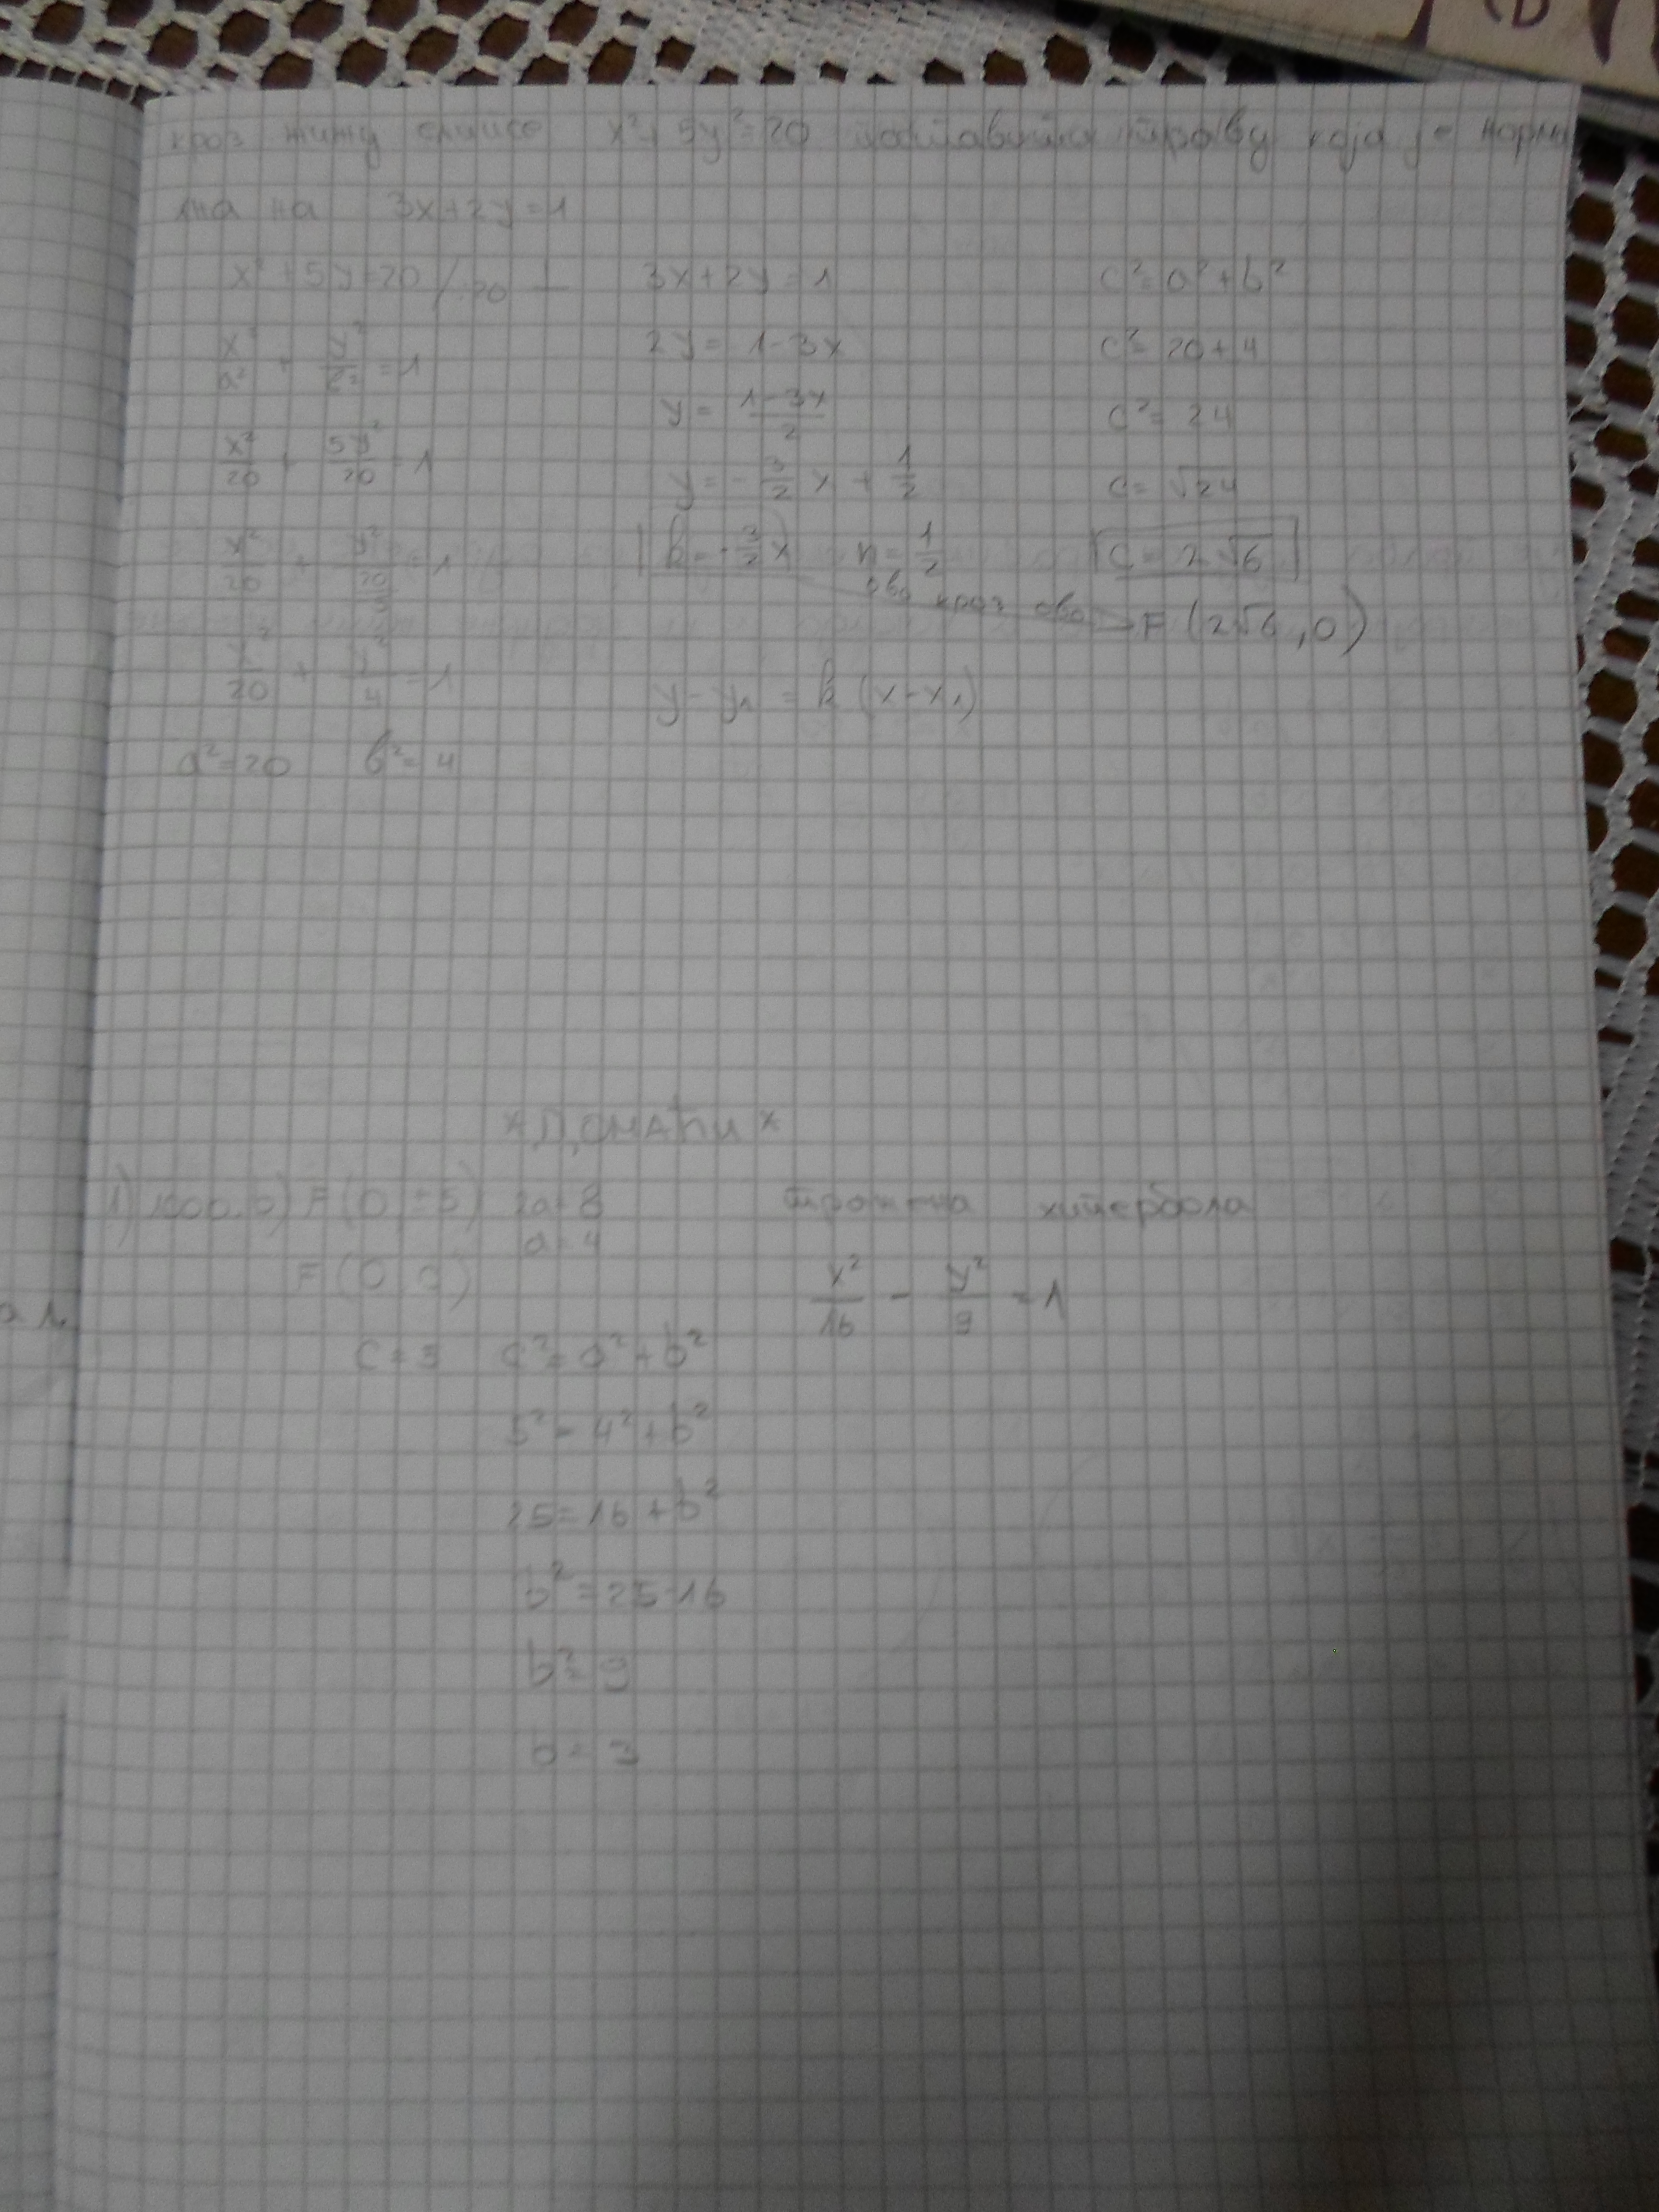 кроз жижу елипсе x²+5y²=20 поставити праву која је норма
лна на 3x+2y=1
x²+5y=20 /:20
x²/a² + y²/b² = 1
x²/20 + 5y²/20 = 1
x²/20 + y²/(20/5) = 1
x²/20 + y²/4 = 1
a²=20 b²=4
3x+2y=1
2y=1-3x
y=(1-3x)/2
y=-3/2 x + 1/2
k=-3/2 x n=1/2
ово кроз ово
y-y₁=k(x-x₁)
c²=a²+b²
c²=20+4
c²=24
c=√24
c=2√6
F(2√6,0)
*ДОМАЋИ*
1) F(0,±5) 2a=8
a=4
F(0,
c²=a²+b²
5²=4²+b²
25=16+b²
b²=25-16
b²=9
b=3
тражена хипербола
x²/16 - y²/9 = 1
a 1.